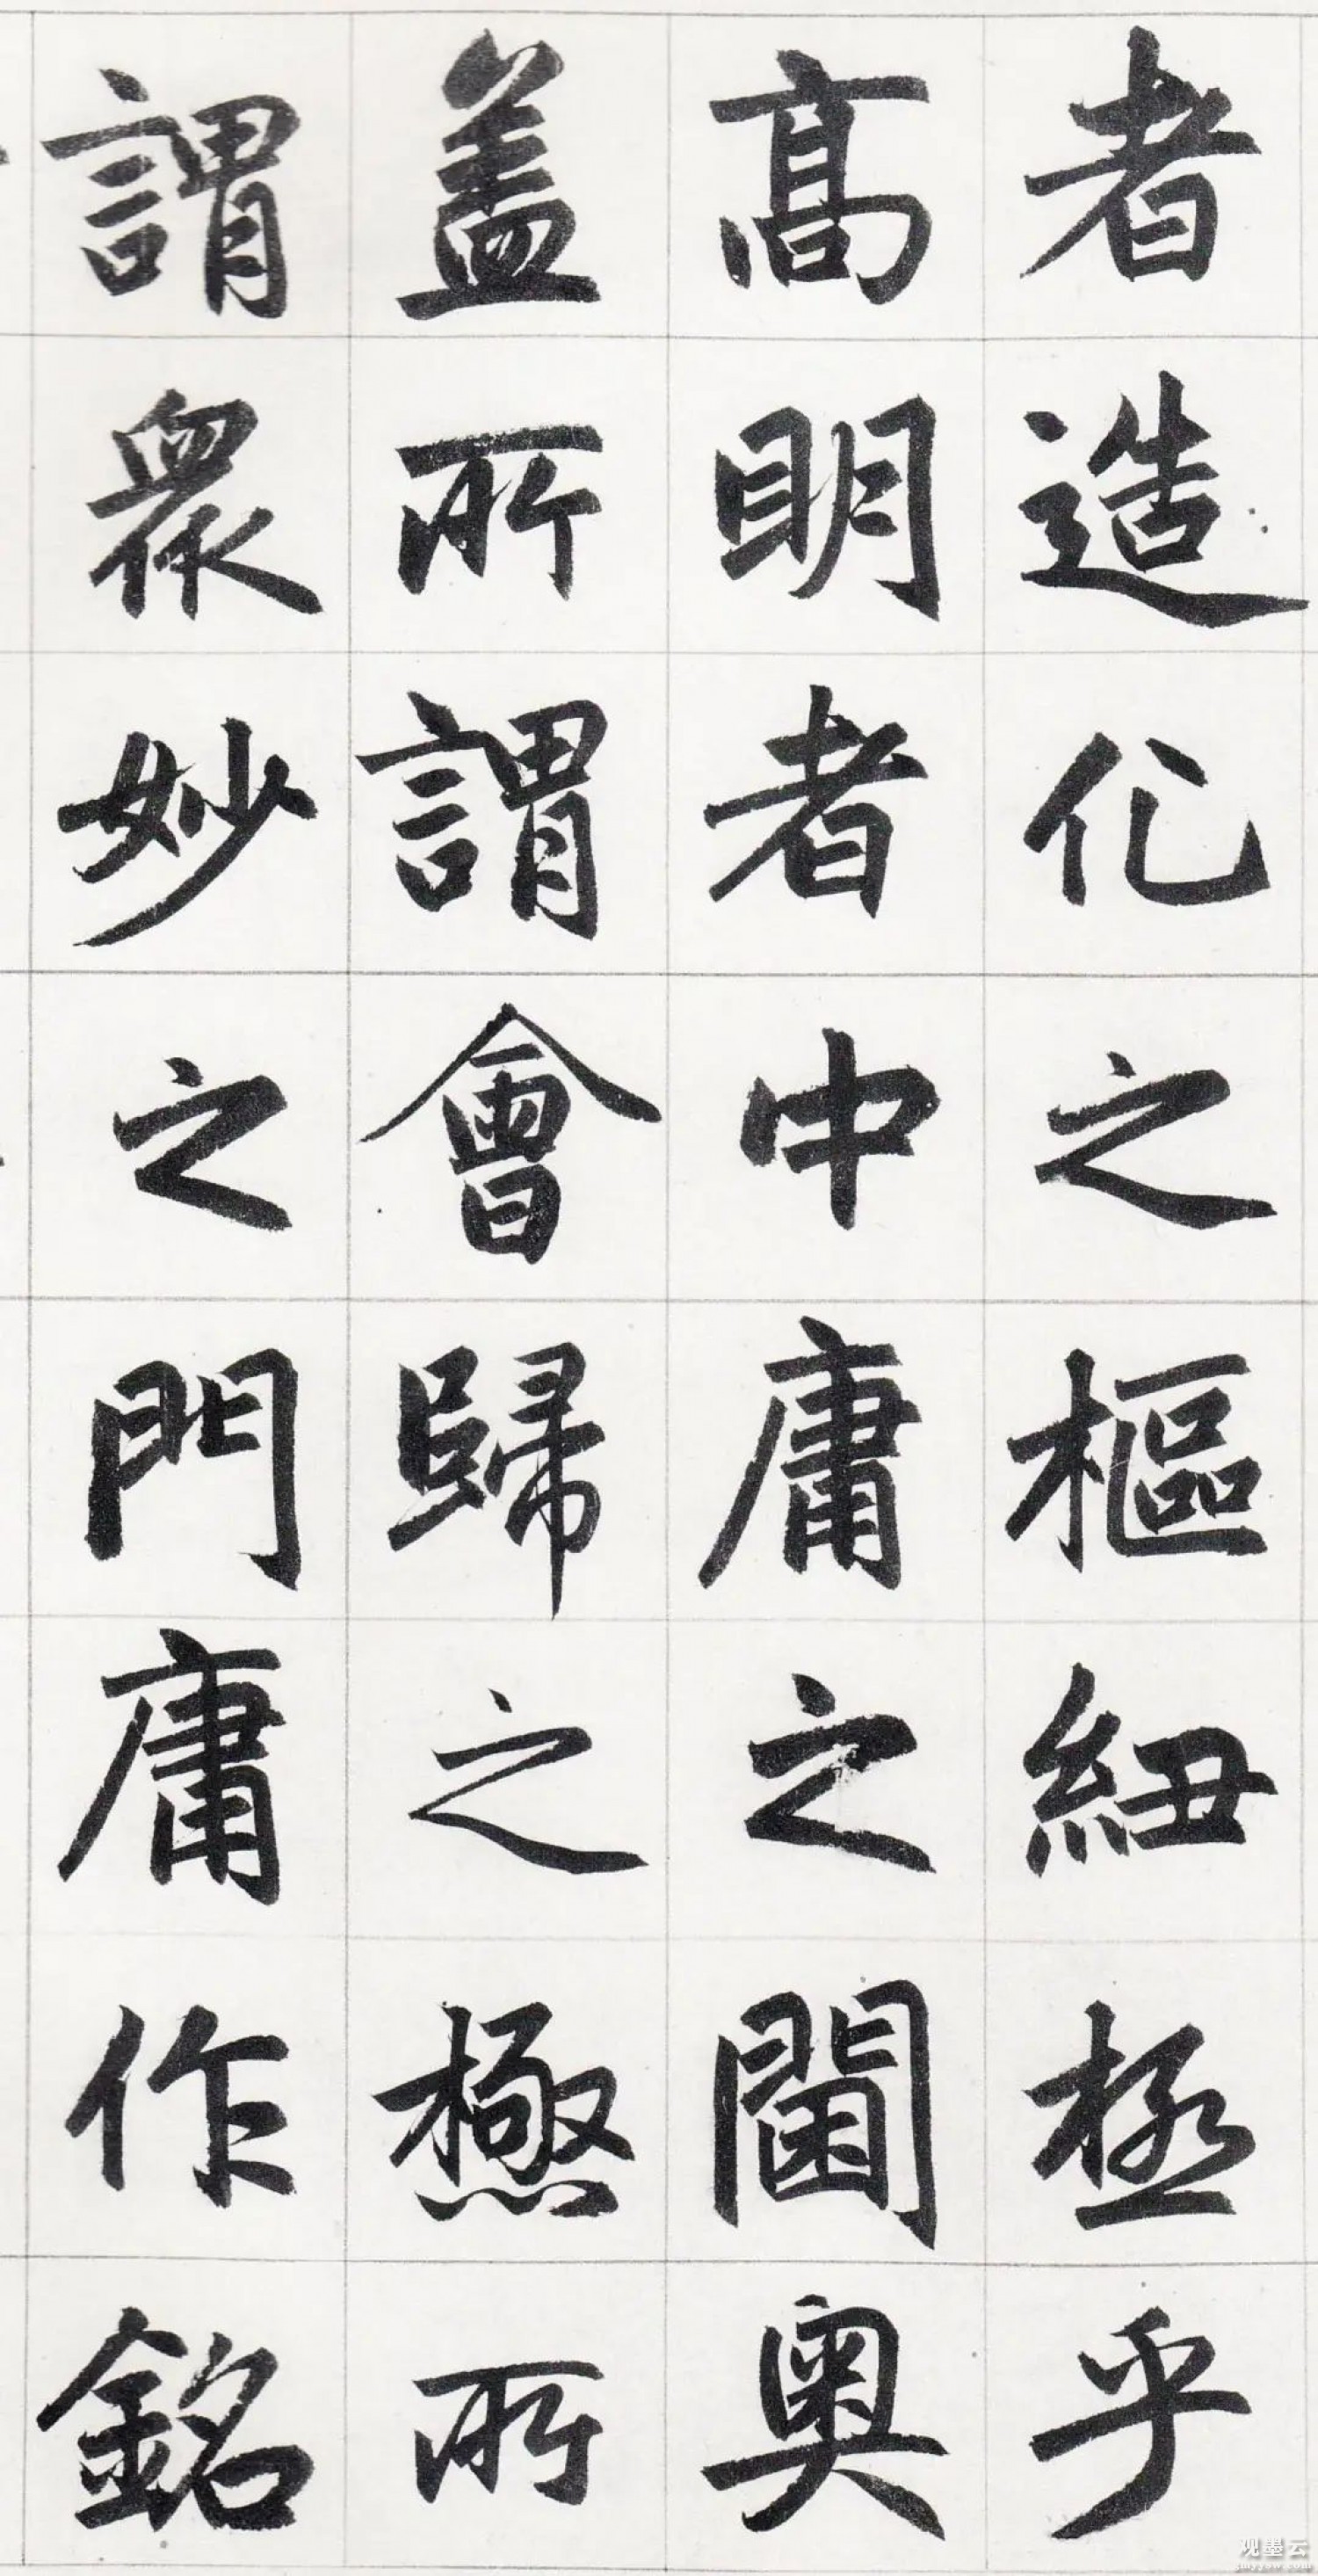 者造化之樞紐極乎
高明者中庸之閫奥
盖所謂會歸之極所
謂衆妙之門庸作銘
观墨云